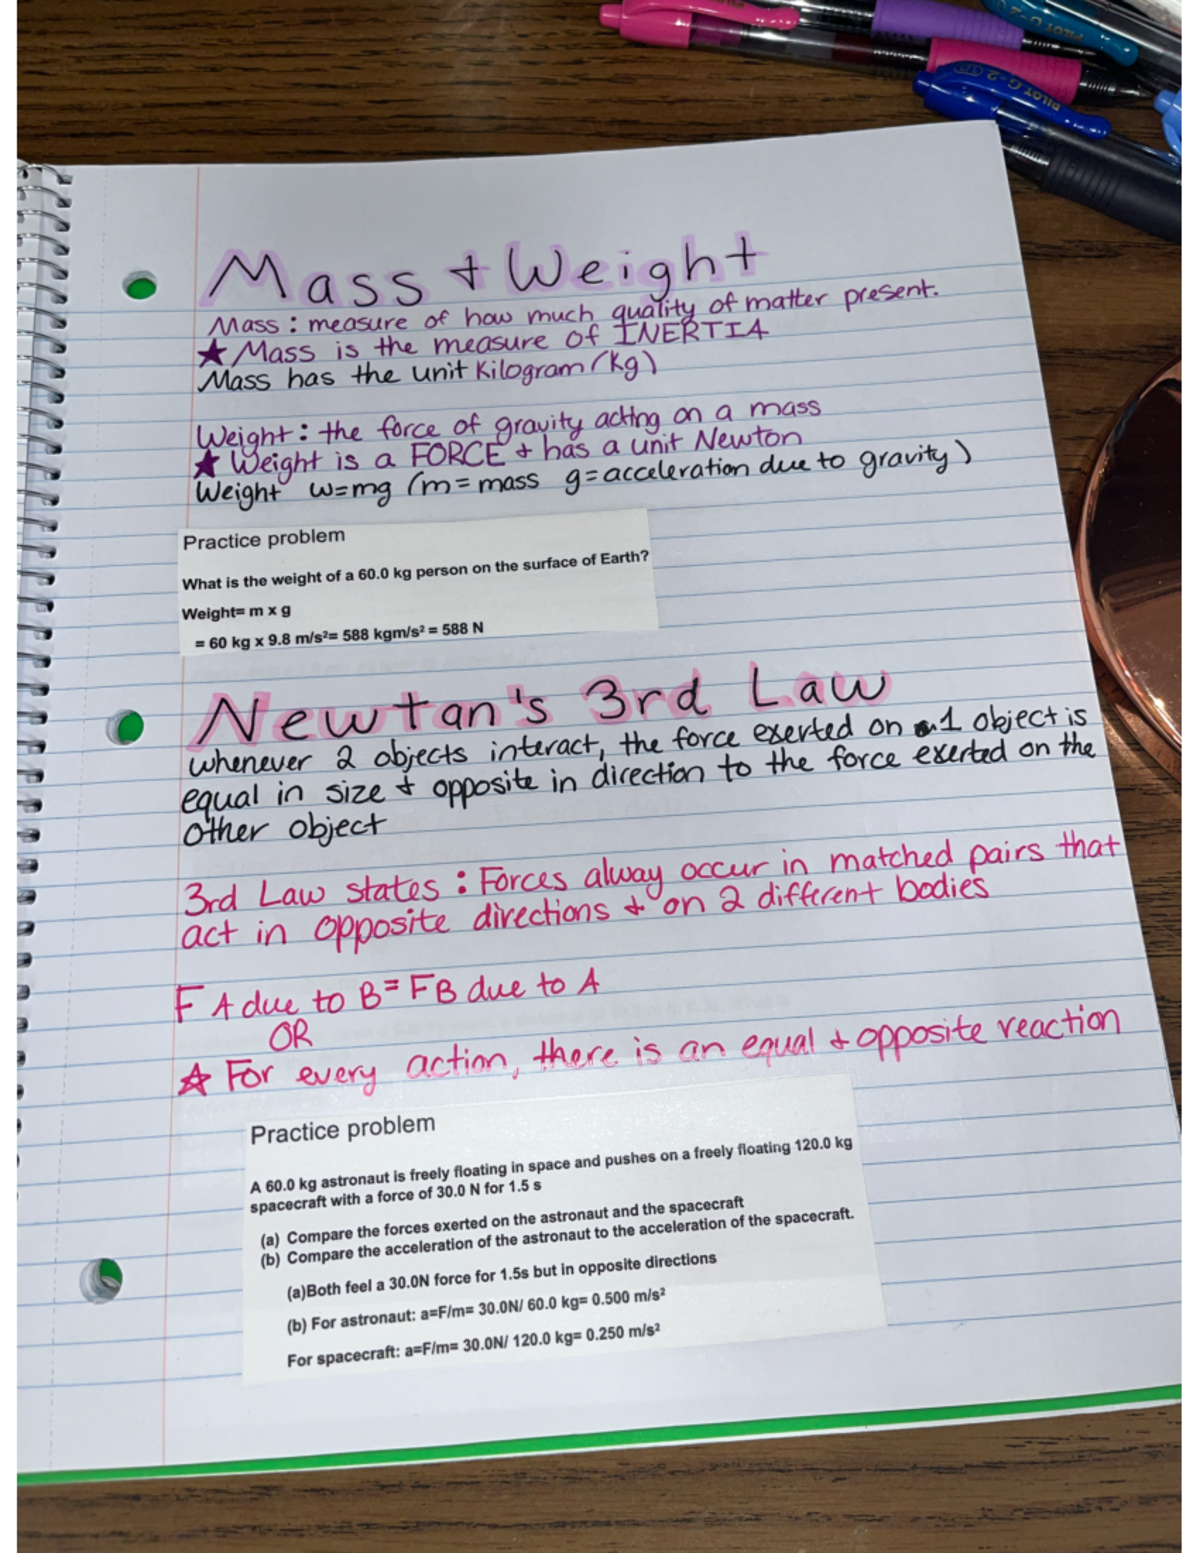 PILOT G-2
PILOT G-2 07
Mass + Weight
Mass : measure of how much quality of matter present.
★ Mass is the measure of INERTIA
Mass has the unit Kilogram (kg)
Weight : the force of gravity acting on a mass
★ Weight is a FORCE + has a unit Newton
Weight w=mg (m=mass g=acceleration due to gravity)
Practice problem
What is the weight of a 60.0 kg person on the surface of Earth?
Weight= m x g
= 60 kg x 9.8 m/s²= 588 kgm/s² = 588 N
Newtan's 3rd Law
whenever 2 objects interact, the force exerted on 1 object is
equal in size + opposite in direction to the force exerted on the
other object
3rd Law states : Forces alway occur in matched pairs that
act in opposite directions + on 2 different bodies
F A due to B = F B due to A
OR
☆ For every action, there is an equal + opposite reaction
Practice problem
A 60.0 kg astronaut is freely floating in space and pushes on a freely floating 120.0 kg
spacecraft with a force of 30.0 N for 1.5 s
(a) Compare the forces exerted on the astronaut and the spacecraft
(b) Compare the acceleration of the astronaut to the acceleration of the spacecraft.
(a)Both feel a 30.0N force for 1.5s but in opposite directions
(b) For astronaut: a=F/m= 30.0N/ 60.0 kg= 0.500 m/s²
For spacecraft: a=F/m= 30.0N/ 120.0 kg= 0.250 m/s²